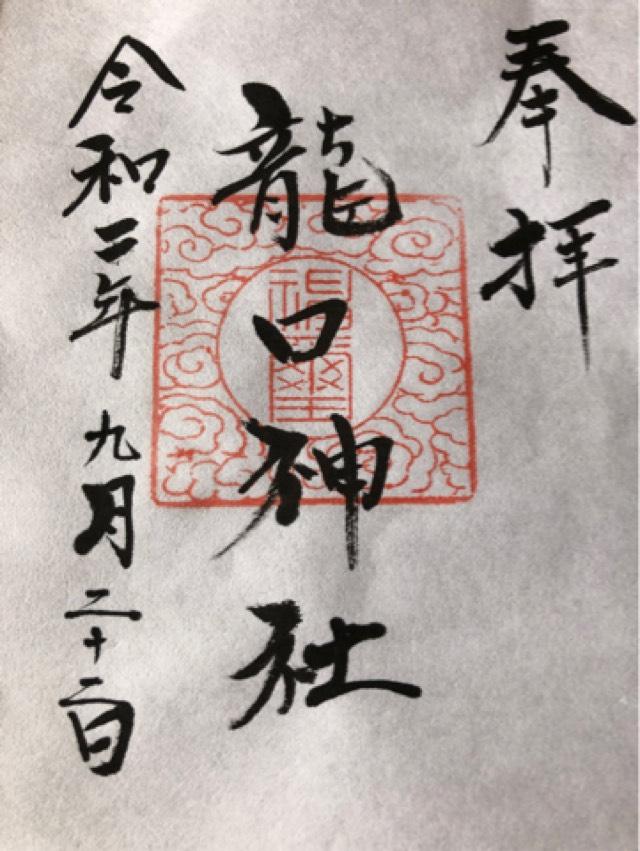 奉拝
龍口神社
令和二年九月二十二日